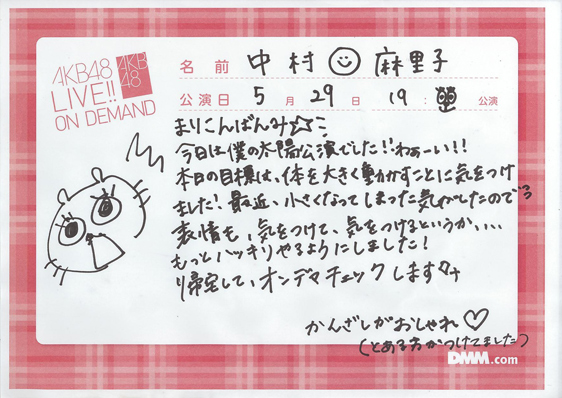 AKB48
LIVE!!
ON DEMAND
AKB
48
名前 中村 麻里子
公演日 5月29日 19:00公演
まりこんばんみ☆ミ
今日は僕の太陽公演でした!!わぁーい!!
本日の目標は、体を大きく動かすことに気をつけ
ました!最近、小さくなってしまった気がしたので
表情も、気をつけて、気をつけるというか、、、、
もっとハッキリやるようにしました!
帰宅して、オンデマチェックします
かんざしがおしゃれ♡
(とある方がつけてました)
DMM.com